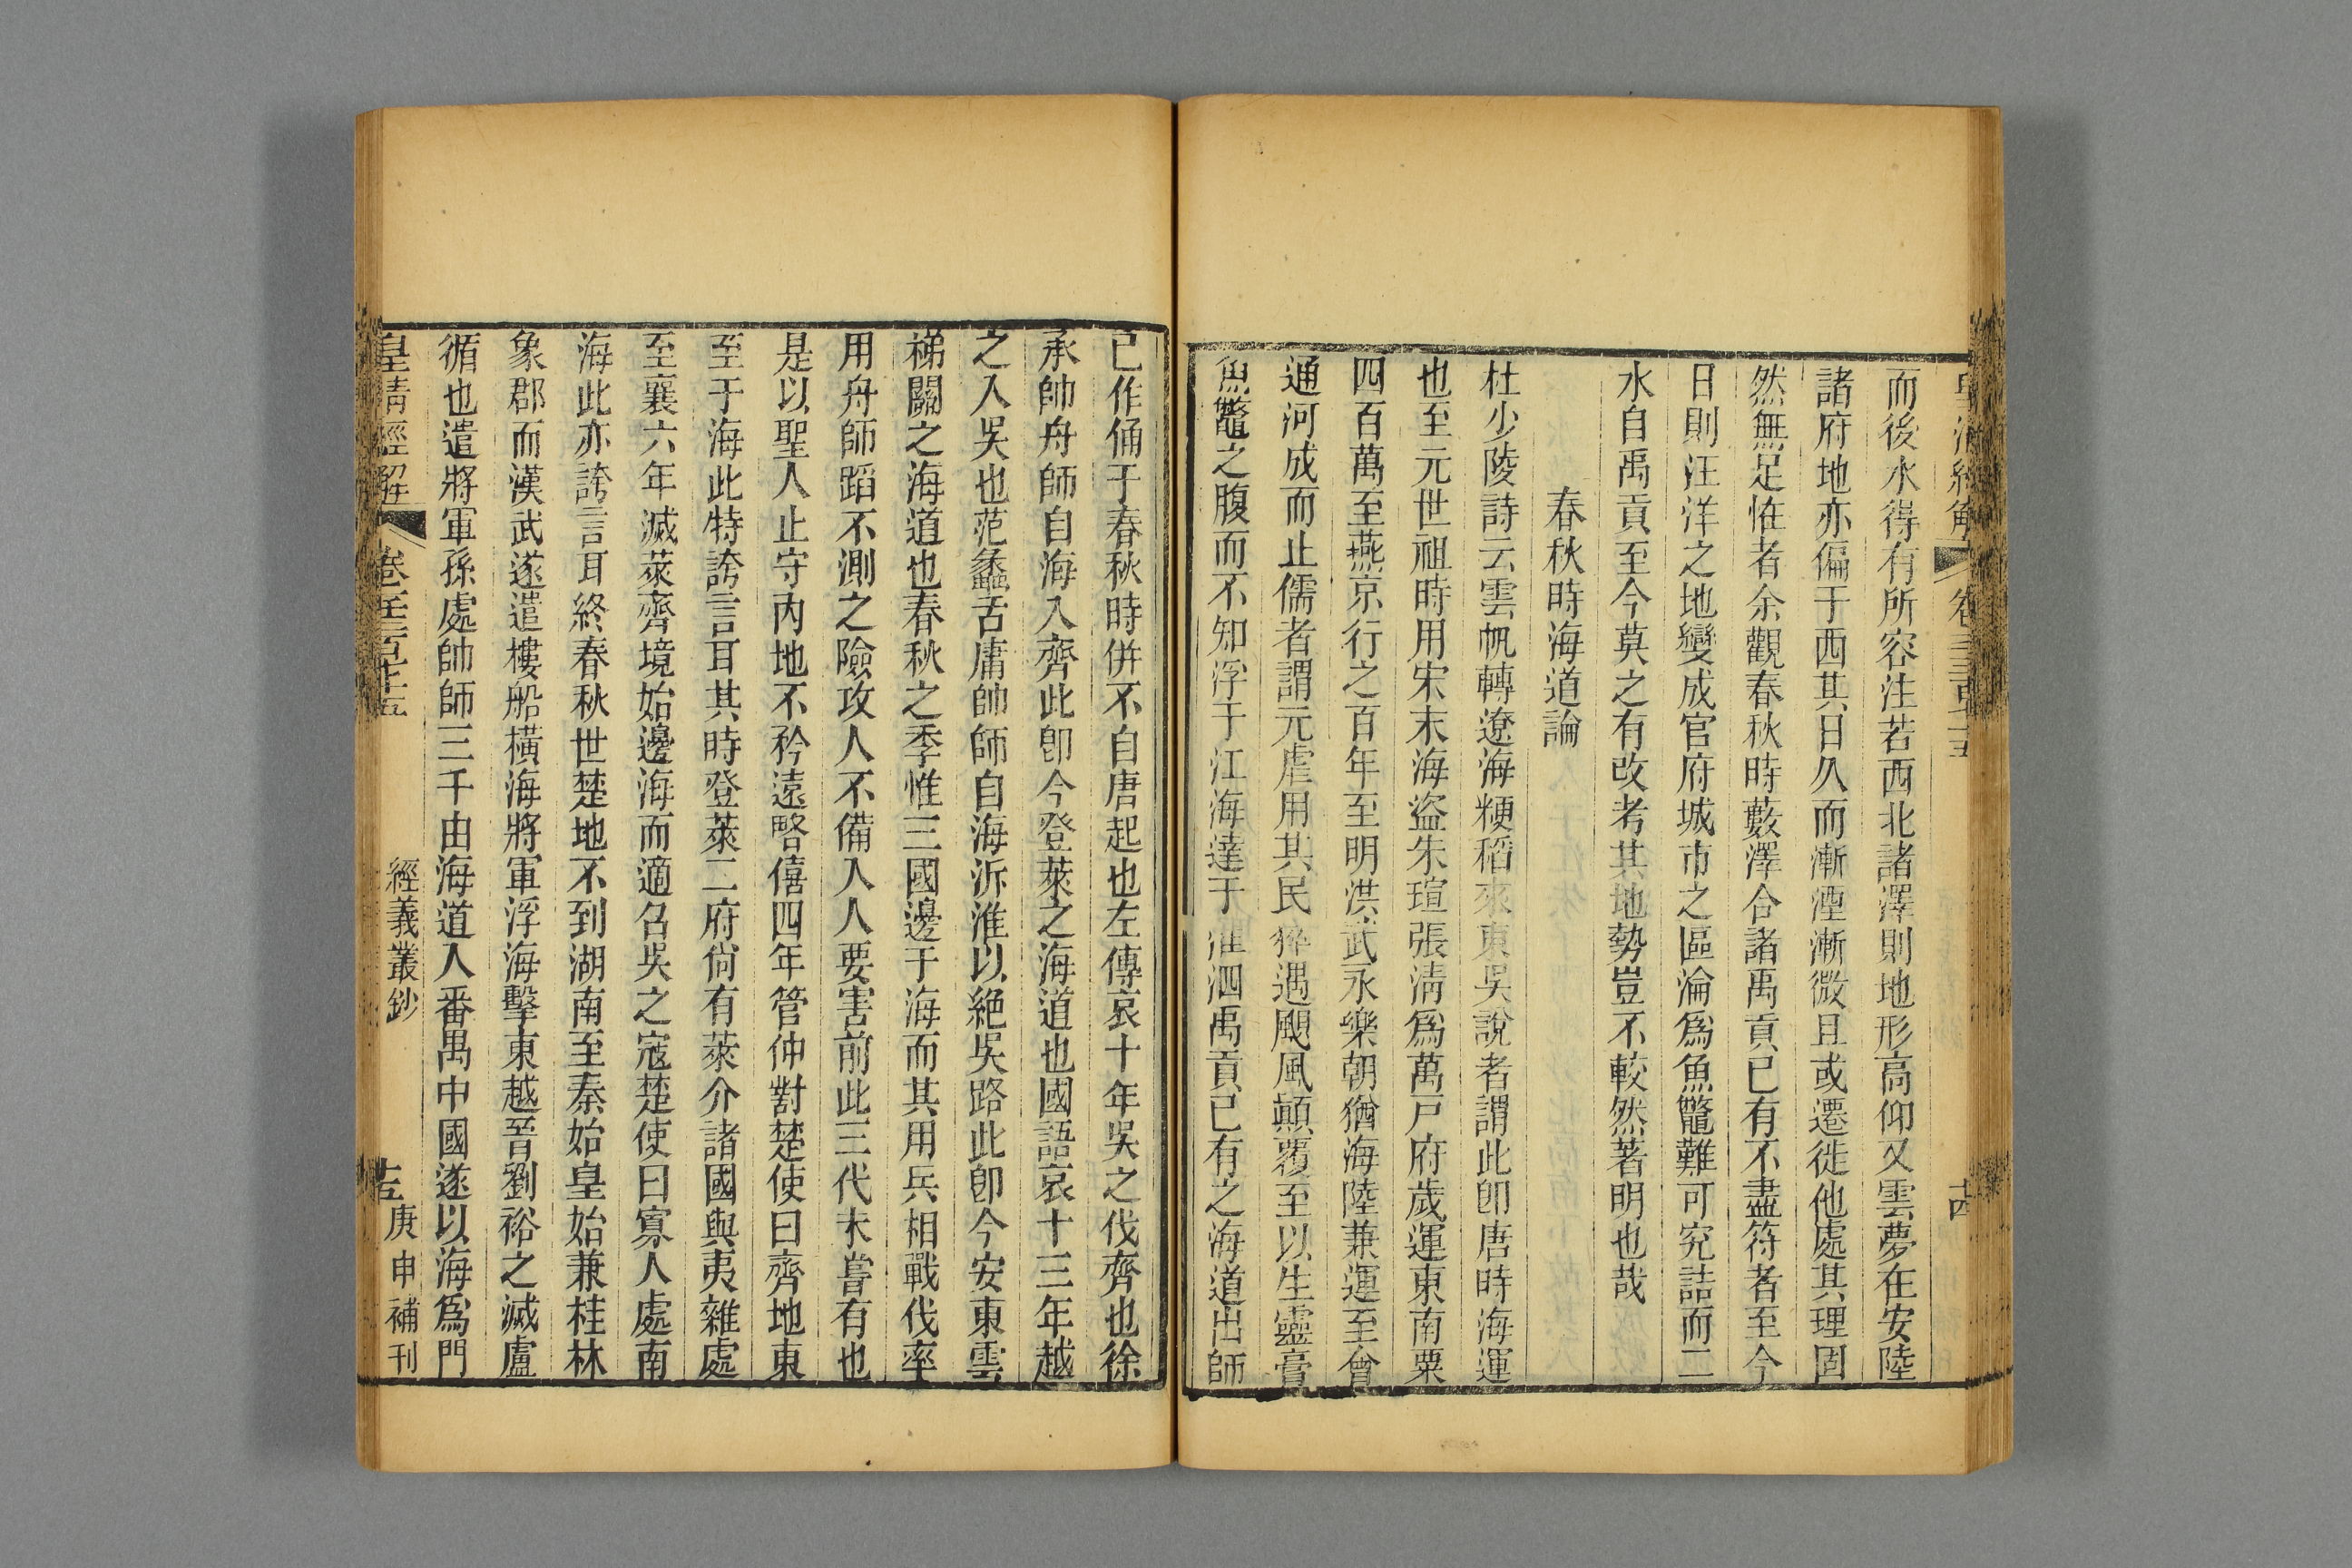 而後水得有所容注若西北諸澤則地形高仰又雲夢在安陸
諸府地亦偏于西其日久而漸湮漸微且或遷徙他處其理固
然無足怪者余觀春秋時藪澤合諸禹貢已有不盡符者至今
日則汪洋之地變成官府城市之區淪爲魚鼈難可究詰而二
水自禹貢至今莫之有改考其地勢豈不較然著明也哉
春秋時海道論
杜少陵詩云雲帆轉遼海粳稻來東吳說者謂此卽唐時海運
也至元世祖時用宋末海盜朱瑄張淸爲萬戸府歲運東南粟
四百萬至燕京行之百年至明洪武永樂朝猶海陸兼運至會
通河成而止儒者謂元虐用其民猝遇颶風顛覆至以生靈膏
魚鼈之腹而不知浮于江海達于淮泗禹貢已有之海道出師
已作俑于春秋時併不自唐起也左傳哀十年吳之伐齊也徐
承帥舟師自海入齊此卽今登萊之海道也國語哀十三年越
之入吳也范蠡舌庸帥師自海泝淮以絕吳路此卽今安東雲
梯關之海道也春秋之季惟三國邊于海而其用兵相戰伐率
用舟師蹈不測之險攻人不備入人要害前此三代未嘗有也
是以聖人止守內地不矜遠略僖四年管仲對楚使曰齊地東
至于海此特誇言耳其時登萊二府尙有萊介諸國與夷雜處
至襄六年滅萊齊境始邊海而適召吳之寇楚使曰寡人處南
海此亦誇言耳終春秋世楚地不到湖南至秦始皇始兼桂林
象郡而漢武遂遣樓船橫海將軍浮海擊東越晉劉裕之滅盧
循也遣將軍孫處帥師三千由海道入番禺中國遂以海爲門
皇淸經解 卷 經義叢鈔 庚申補刊